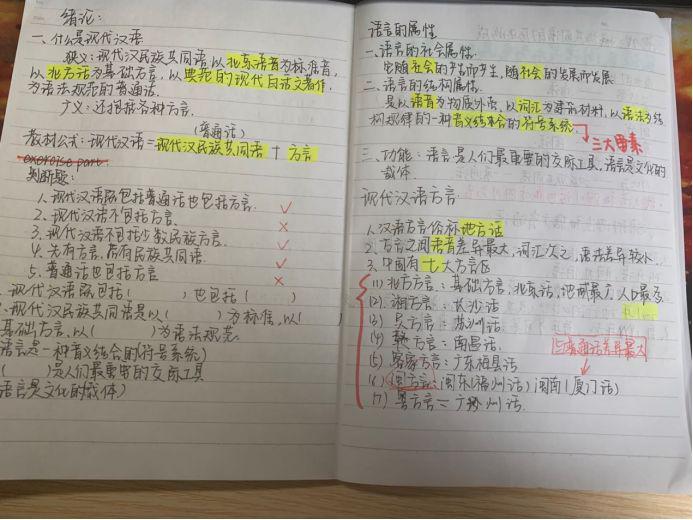 绪论:
一、什么是现代汉语
狭义:现代汉民族共同语以北京语音为标准音,
以北方话为基础方言,以典范的现代白话文著作
为语法规范的普通话.
广义:还包括各种方言.
(普通话)
教材公式:现代汉语=现代汉民族共同语+方言
exercise part
判断题:
1.现代汉语既包括普通话也包括方言. ✓
2.现代汉语不包括方言. ×
3.现代汉语不包括少数民族方言. ✓
4.先有方言,后有民族共同语. ✓
5.普通话也包括方言 ×
现代汉语既包括( )也包括( )
现代汉民族共同语是以( )为标准,以(
基础方言,以( )为语法规范.
语言是一种音义结合的符号系统)
( )是人们最重要的交际工具
语言是文化的载体)
语言的属性
一、语言的社会属性.
它随社会的产生而产生,随社会的发展而发展.
二、语言的结构属性.
是以语音为物质外壳,以词汇为建筑材料,以语法为结
构规律的一种音义结合的符号系统.
三大要素
三、功能:语言是人们最重要的交际工具,语言是文化的
载体
现代汉语方言
1.汉语方言俗称地方话
2.方言之间语音差异最大,词汇次之,语法差异较小.
3.中国有七大方言区
(1)北方方言:基础方言,北京话,地域最广,人口最多
(2).湘方言:长沙话
(3)吴方言:苏州话
(4)赣方言:南昌话.
与普通话差异最大
(5)客家方言:广东梅县话
(6)闽方言:闽东(福州话)闽南(厦门话)
(7)粤方言=广州话.